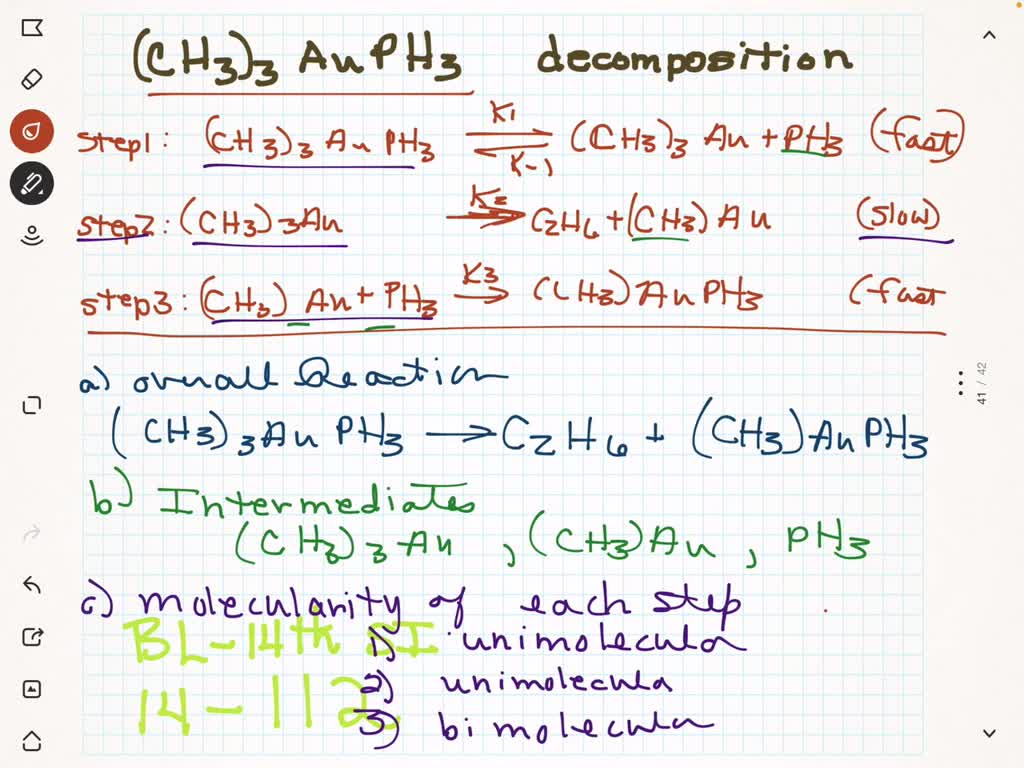 (CH3)3 Au PH3 decomposition
step1: (CH3)3 Au PH3 ⇌ (CH3)3 Au + PH3 (fast)
K1
K-1
step2: (CH3)3Au → C2H6 + (CH3) Au (slow)
K2
step3: (CH3) Au + PH3 → (CH3) Au PH3 (fast
K3
a) overall Reaction
(CH3)3 Au PH3 → C2H6 + (CH3) Au PH3
b) Intermediates
(CH3)3 Au , (CH3) Au , PH3
c) molecularity of each step
BL-14th SI
1) unimolecula
14-112
2) unimolecula
3) bimolecula
41 / 42